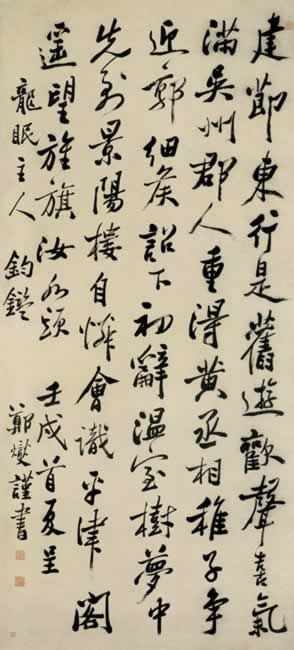 建節東行是舊遊歡聲喜氣
滿吳州郡人重得黃丞相稚子爭
迎郭細侯詔下初辭溫室樹夢中
先到景陽樓自憐會識平津閣
遙望旌旗汝水頭 壬戌首夏呈
龍眠主人 鈞鑒
鄭燮謹書